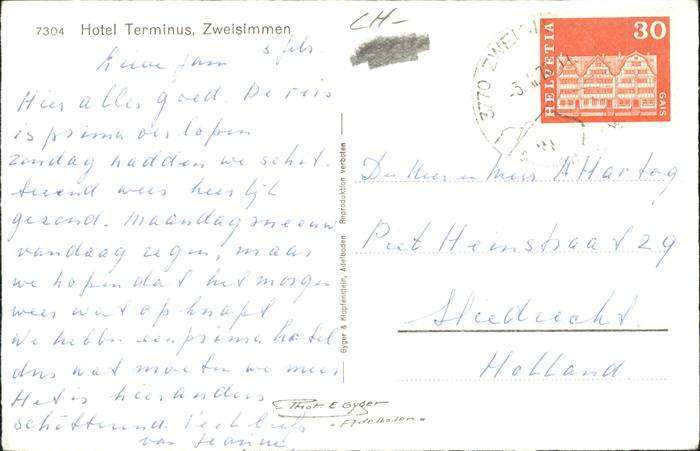 7304 Hotel Terminus, Zweisimmen
5 febr.
Lieve fam
Hier alles goed. De reis
is prima verlopen
zondag hadden we schit-
terend weer heerlijk
gezond. Maandag sneeuw
vandaag regen, maar
we hopen dat het morgen
weer wat opknapt
We hebben een prima hotel
dus wat moeten we meer
Het is hier anders
schitterend. Veel liefs
van Jeanne
CH-
3770 ZWEISI
HELVETIA
30
GAIS
Gyger & Klopfenstein, Adelboden Reproduktion verboten
A Hartog
Piet Heinstraat 29
Sliedrecht
Holland
Phot E. Gyger
Adelboden